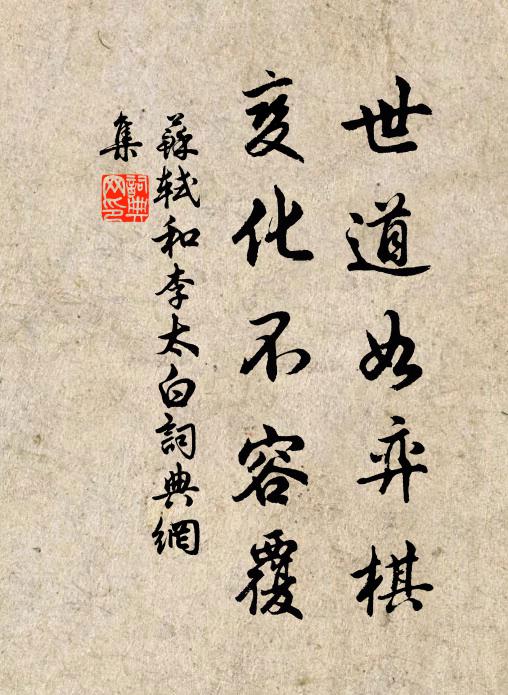 世道如弈棋
变化不容覆
蘇軾和李太白詞典網
集
詞典
网印